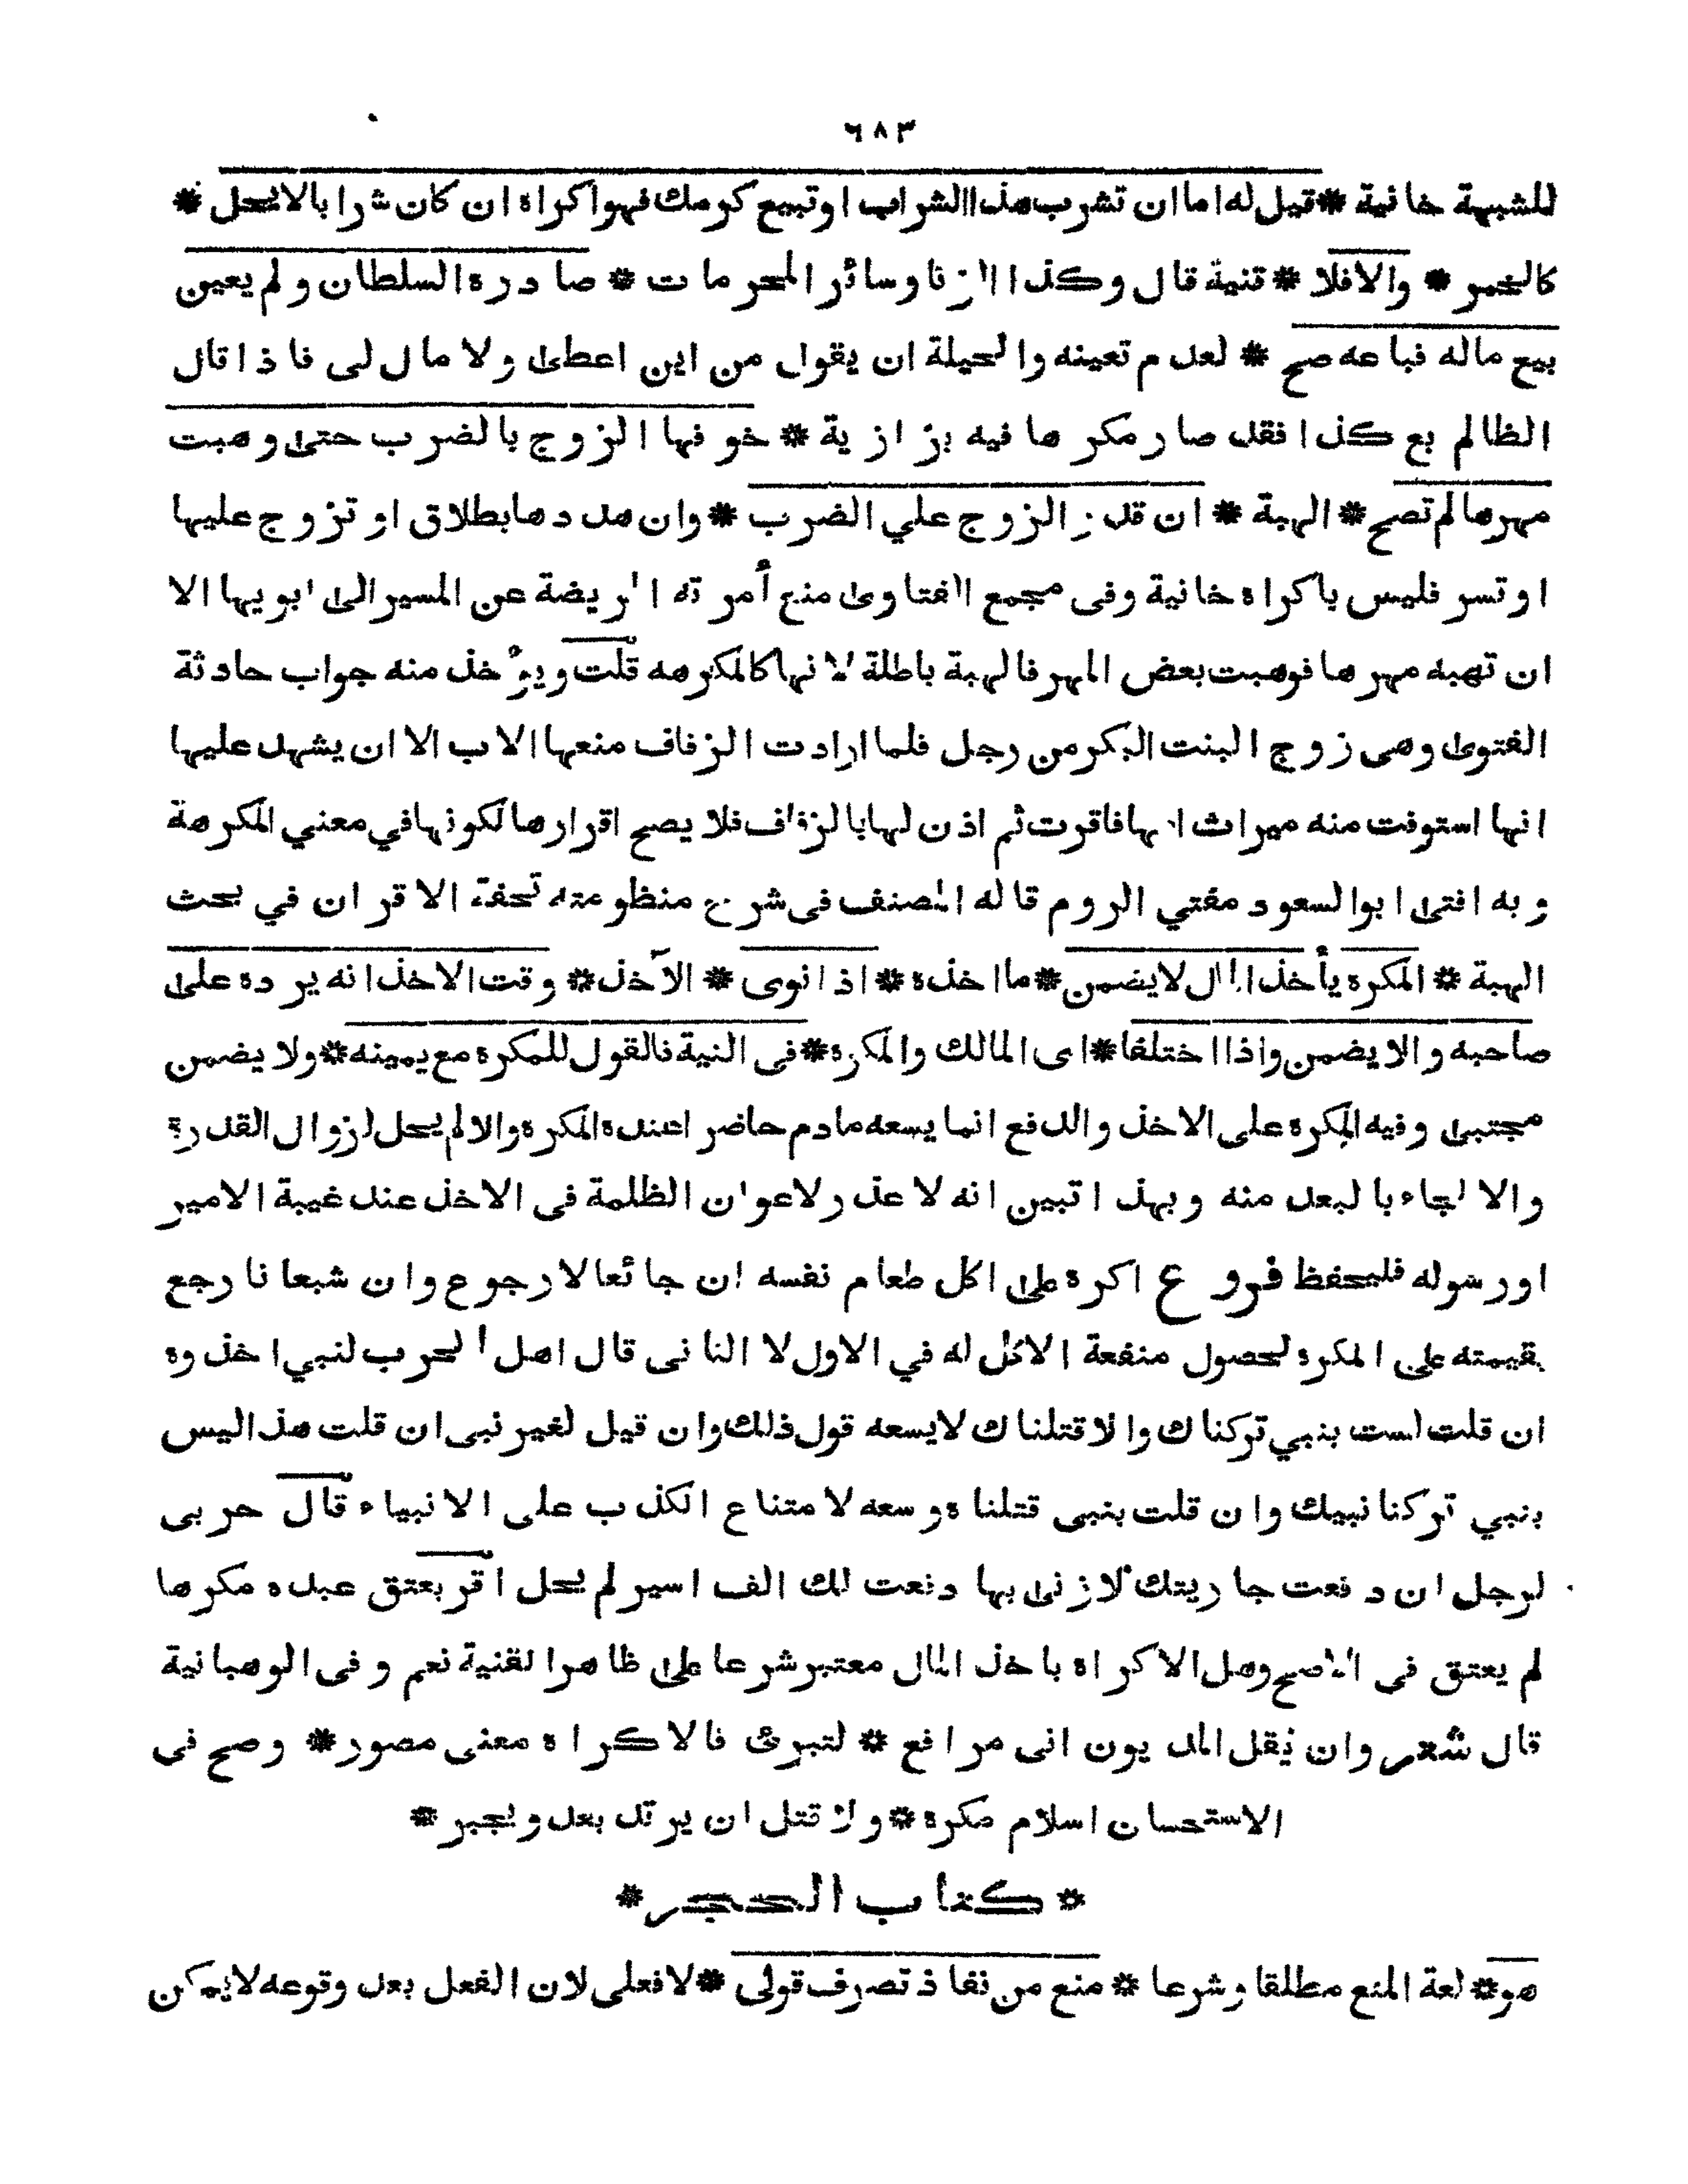 ٦٨٣
للشبهة خانية * قيل له اما ان تشرب هذا الشراب او تبيع كرمك فهو اكراه ان كان شرابا لا يحل *
كالخمر * والا فلا * قنية قال وكذا الزنا وسائر المحرمات * صادره السلطان ولم يعين
بيع ماله فباعه صح * لعدم تعينه والحيلة ان يقول من اين اعطى ولا مال لى فاذا قال
الظالم بع كذا فقد صار مكرها فيه بزازية * خوفها الزوج بالضرب حتى وهبت
مهرها لم تصح * الهبة * ان قدر الزوج علي الضرب * وان هددها بطلاق او تزوج عليها
او تسر فليس باكراه خانية وفى مجمع الفتاوى منع أمرته المريضة عن المسير الى ابويها الا
ان تهبه مهرها فوهبت بعض المهر فالهبة باطلة لانها كالمكرهه قلت ويؤخذ منه جواب حادثة
الفتوى وهى زوج البنت البكر من رجل فلما ارادت الزفاف منعها الاب الا ان يشهد عليها
انها استوفت منه ميراث امها فاقرت ثم اذن لها بالزفاف فلا يصح اقرارها لكونها في معني المكرهة
وبه افتى ابو السعود مفتي الروم قاله المصنف فى شرح منظومته تحفة الاقران في بحث
الهبة * المكره يأخذ المال لا يضمن * ما اخذه * اذا نوى * الآخذ * وقت الاخذ انه يرده على
صاحبه والا يضمن واذا اختلفا * اى المالك والمكره * فى النية فالقول للمكره مع يمينه * ولا يضمن
مجتبى وفيه المكره على الاخذ والدفع انما يسعه مادم حاضرا عنده المكره والا لم يحل لزوال القدرة
والالجاء بالبعد منه وبهذا تبين انه لا عذر لاعوان الظلمة فى الاخذ عند غيبة الامير
او رسوله فليحفظ فروع اكره على اكل طعام نفسه ان جائعا لا رجوع وان شبعانا رجع
بقيمته على المكره لحصول منفعة الاكل له في الاول لا الثانى قال اهل الحرب لنبي اخذوه
ان قلت لست بنبي تركناك والا قتلناك لا يسعه قول ذلك وان قيل لغير نبى ان قلت هذا ليس
بنبي تركنا نبيك وان قلت بنبى قتلناه وسعه لامتناع الكذب على الانبياء قال حربى
لرجل ان دفعت جاريتك لازنى بها دفعت لك الف اسير لم يحل اقر بعتق عبده مكرها
لم يعتق فى الاصح وهل الاكراه باخذ المال معتبر شرعا على ظاهر القنية نعم وفى الوهبانية
قال شعر وان يقل المديون انى مرافع * لتبرئ فالاكراه معنى مصور * وصح فى
الاستحسان اسلام مكره * ولا قتل ان يرتد بعد ويجبر *
* كتاب الحجر *
هو * لغة المنع مطلقا وشرعا * منع من نفاذ تصرف قولى * لا فعلى لان الفعل بعد وقوعه لا يمكن